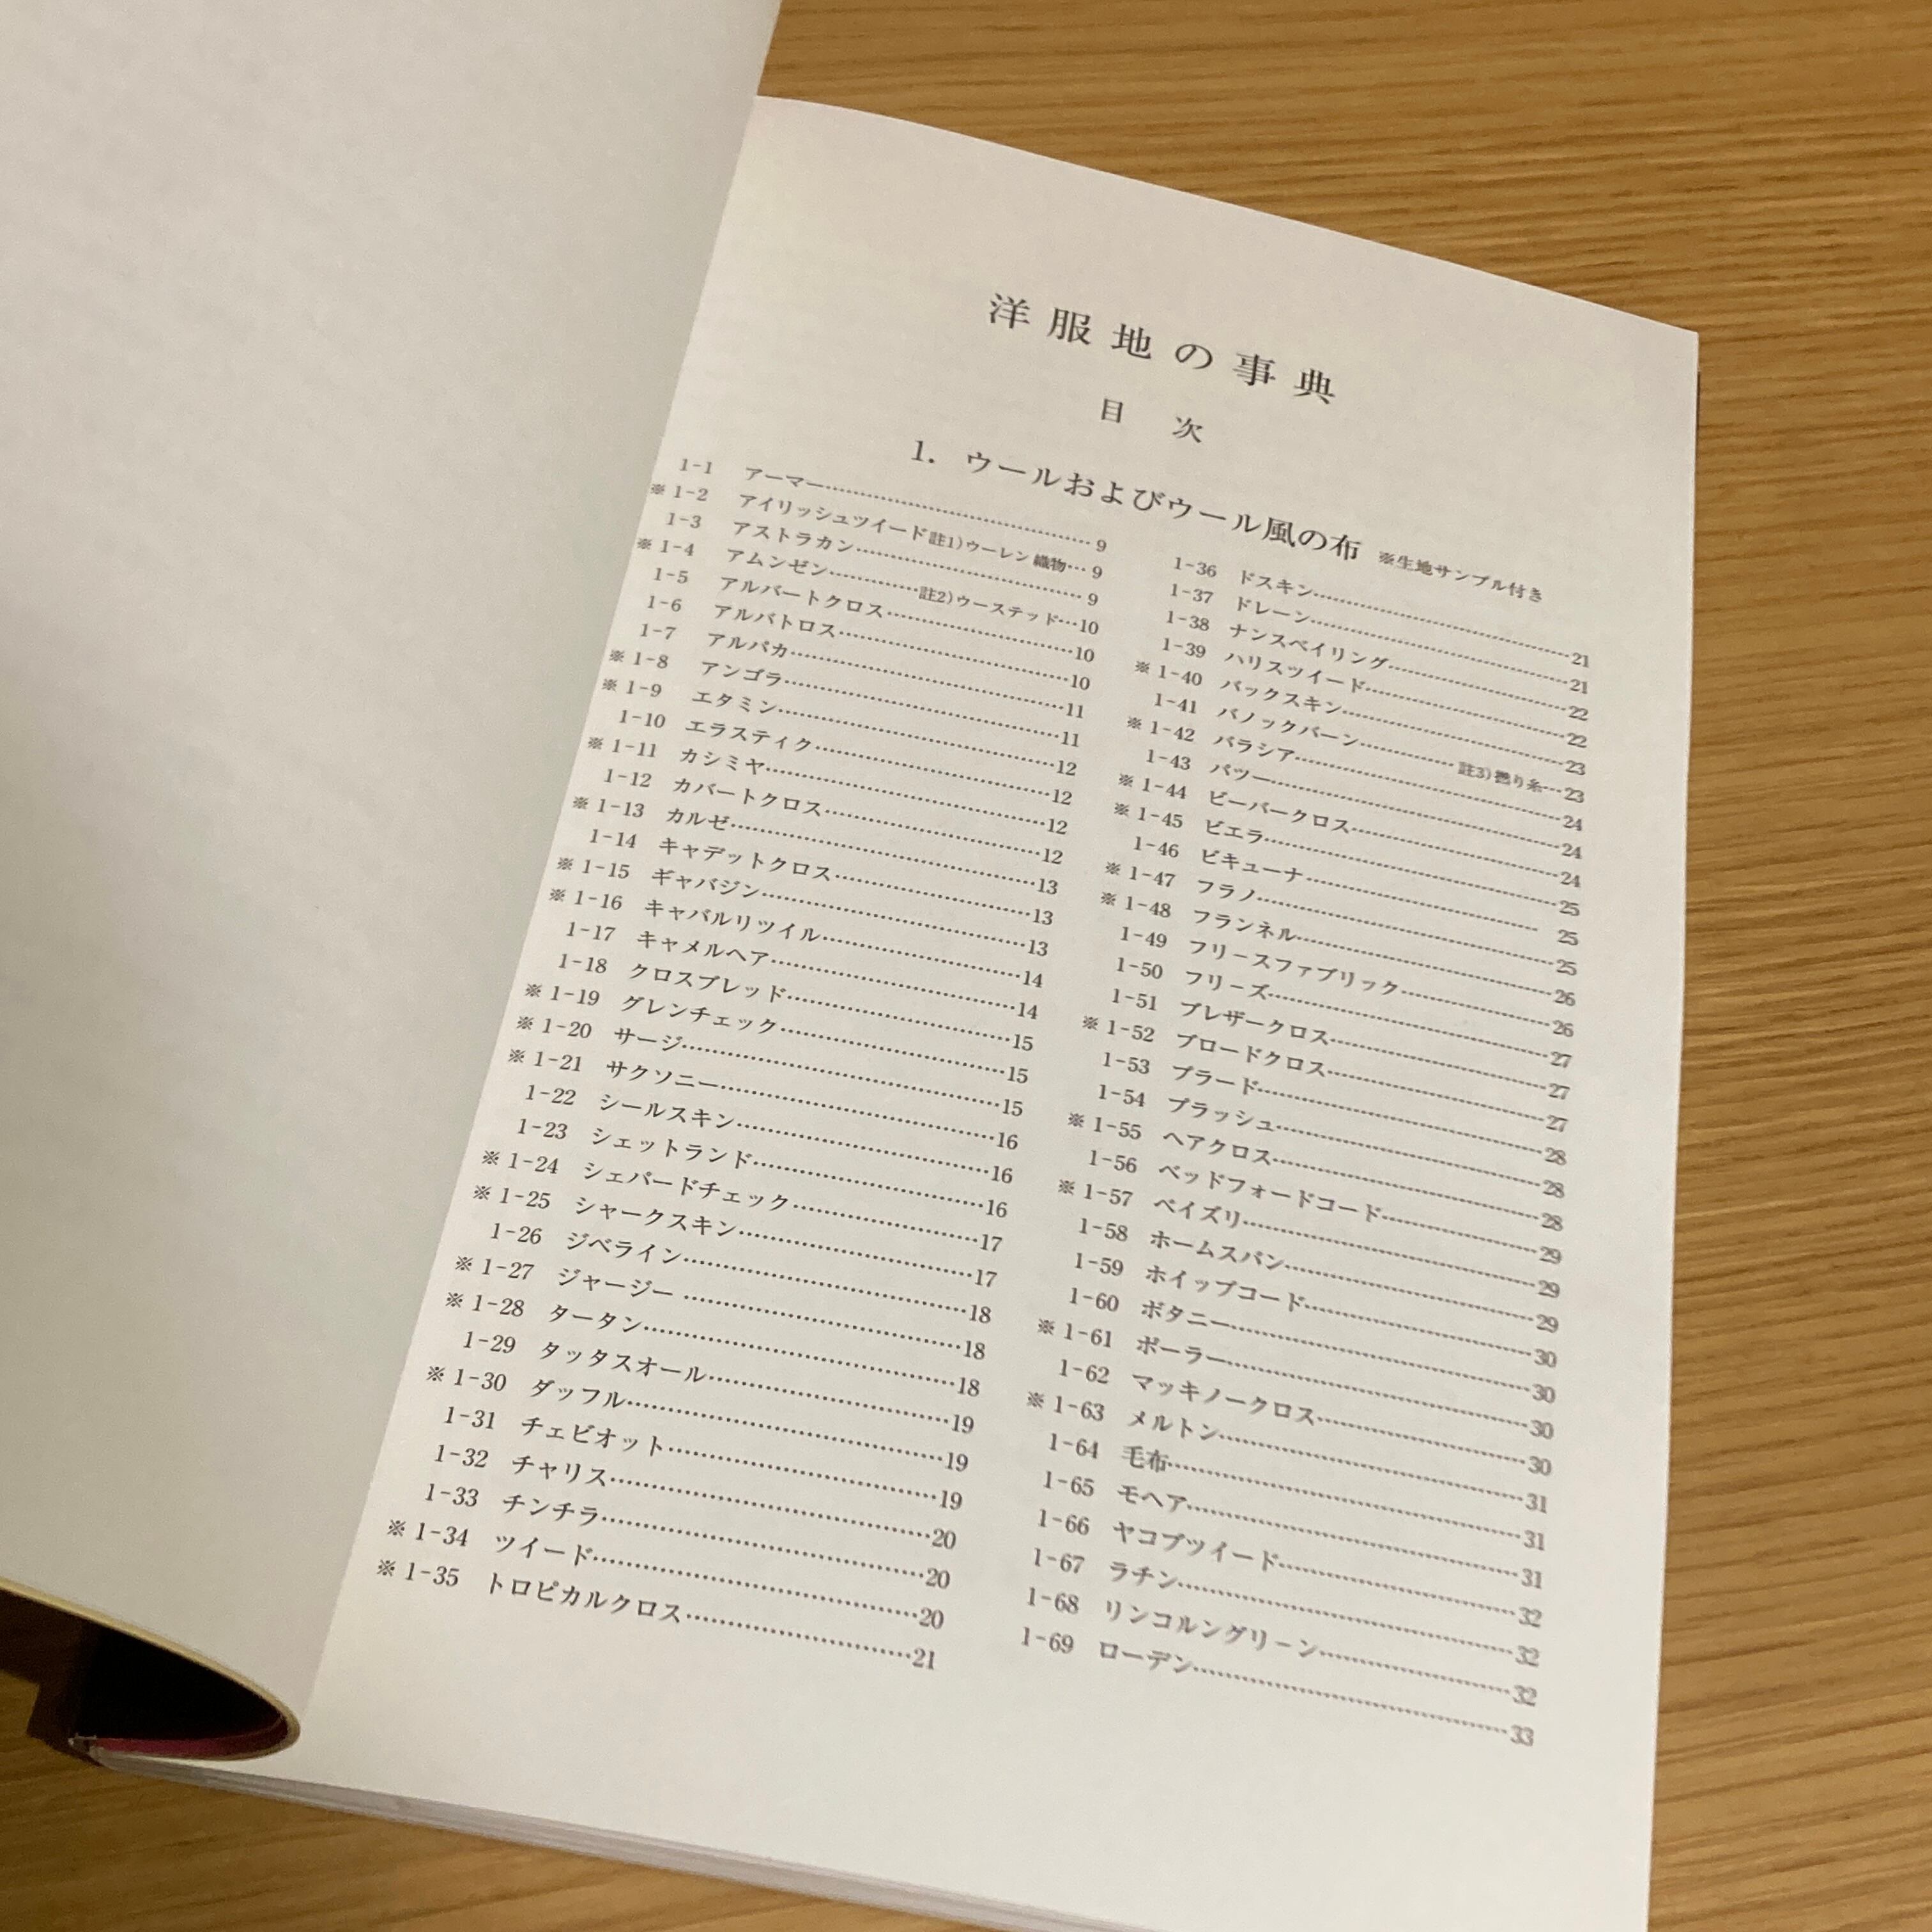 洋服地の事典
目 次
1. ウールおよびウール風の布 ※生地サンプル付き
1-1 アーマー……9
※1-2 アイリッシュツイード 註1)ウーレン織物…9
1-3 アストラカン……9
※1-4 アムンゼン……註2)ウーステッド…10
1-5 アルバートクロス……10
1-6 アルバトロス……10
1-7 アルパカ……11
※1-8 アンゴラ……11
※1-9 エタミン……12
1-10 エラスティク……12
※1-11 カシミヤ……12
1-12 カバートクロス……12
※1-13 カルゼ……13
1-14 キャデットクロス……13
※1-15 ギャバジン……13
※1-16 キャバルリツイル……14
1-17 キャメルヘア……14
1-18 クロスブレッド……15
※1-19 グレンチェック……15
※1-20 サージ……15
※1-21 サクソニー……16
1-22 シールスキン……16
1-23 シェットランド……16
※1-24 シェパードチェック……17
※1-25 シャークスキン……17
1-26 ジベライン……18
※1-27 ジャージー……18
※1-28 タータン……18
1-29 タッタスオール……19
※1-30 ダッフル……19
1-31 チェビオット……19
1-32 チャリス……20
1-33 チンチラ……20
※1-34 ツイード……20
※1-35 トロピカルクロス……21
1-36 ドスキン……21
1-37 ドレーン……21
1-38 ナンスベイリング……22
1-39 ハリスツイード……22
※1-40 バックスキン……23
1-41 バノックバーン……註3)撚り糸…23
※1-42 バラシア……24
1-43 パツー……24
※1-44 ビーバークロス……24
※1-45 ビエラ……25
1-46 ビキューナ……25
※1-47 フラノ……25
※1-48 フランネル……26
1-49 フリースファブリック……26
1-50 フリーズ……27
1-51 ブレザークロス……27
※1-52 ブロードクロス……27
1-53 プラード……28
1-54 プラッシュ……28
※1-55 ヘアクロス……28
1-56 ベッドフォードコード……29
※1-57 ペイズリ……29
1-58 ホームスパン……29
1-59 ホイップコード……30
1-60 ボタニー……30
※1-61 ポーラー……30
1-62 マッキノークロス……30
※1-63 メルトン……31
1-64 毛布……31
1-65 モヘア……31
1-66 ヤコブツイード……32
1-67 ラチン……32
1-68 リンコルングリーン……32
1-69 ローデン……33